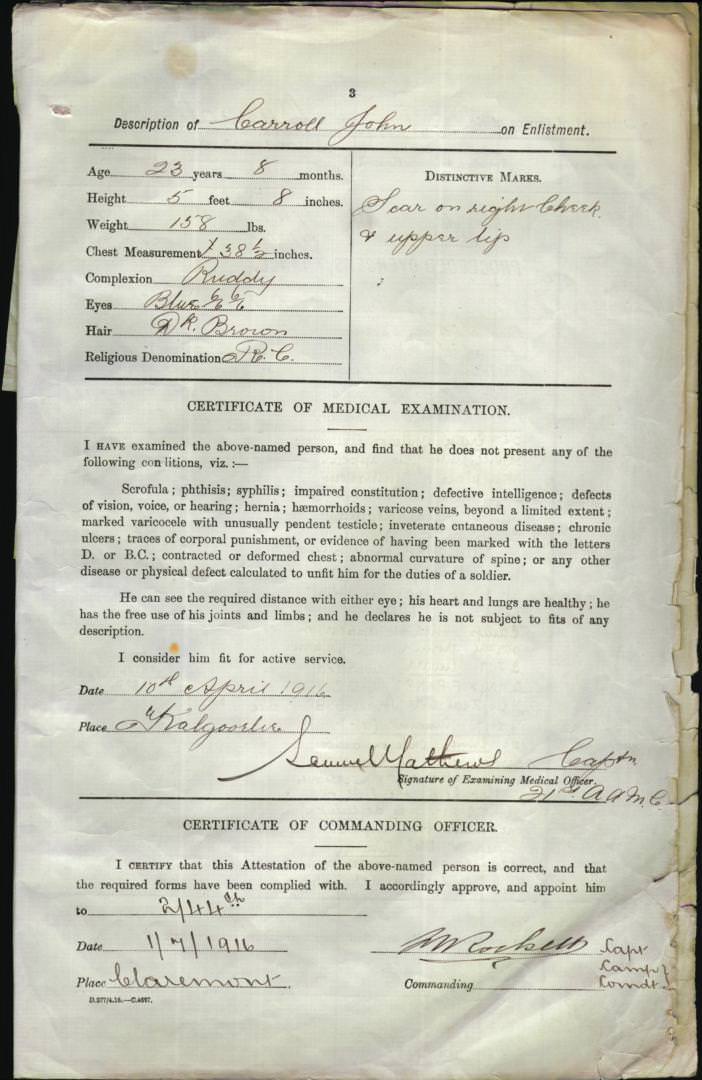 3
Description of Carroll John on Enlistment.
Age 23 years 8 months.
Height 5 feet 8 inches.
Weight 158 lbs.
Chest Measurement 38½ inches.
Complexion Ruddy
Eyes Blue 6/6 6/6
Hair Dk. Brown
Religious Denomination R.C.
DISTINCTIVE MARKS.
Scar on right Cheek
& upper lip
CERTIFICATE OF MEDICAL EXAMINATION.
I HAVE examined the above-named person, and find that he does not present any of the
following conditions, viz. :—
Scrofula ; phthisis ; syphilis ; impaired constitution ; defective intelligence ; defects
of vision, voice, or hearing ; hernia ; hæmorrhoids ; varicose veins, beyond a limited extent ;
marked varicocele with unusually pendent testicle ; inveterate cutaneous disease ; chronic
ulcers ; traces of corporal punishment, or evidence of having been marked with the letters
D. or B.C. ; contracted or deformed chest ; abnormal curvature of spine ; or any other
disease or physical defect calculated to unfit him for the duties of a soldier.
He can see the required distance with either eye ; his heart and lungs are healthy ; he
has the free use of his joints and limbs ; and he declares he is not subject to fits of any
description.
I consider him fit for active service.
Date 10th April 1916
Place Kalgoorlie
Samuel Mathews Captn
Signature of Examining Medical Officer.
21st A.A.M.C.
CERTIFICATE OF COMMANDING OFFICER.
I CERTIFY that this Attestation of the above-named person is correct, and that
the required forms have been complied with. I accordingly approve, and appoint him
to 2/44th
Date 1/7/1916
Capt
Camp
Place Claremont.
Commanding Comdt.